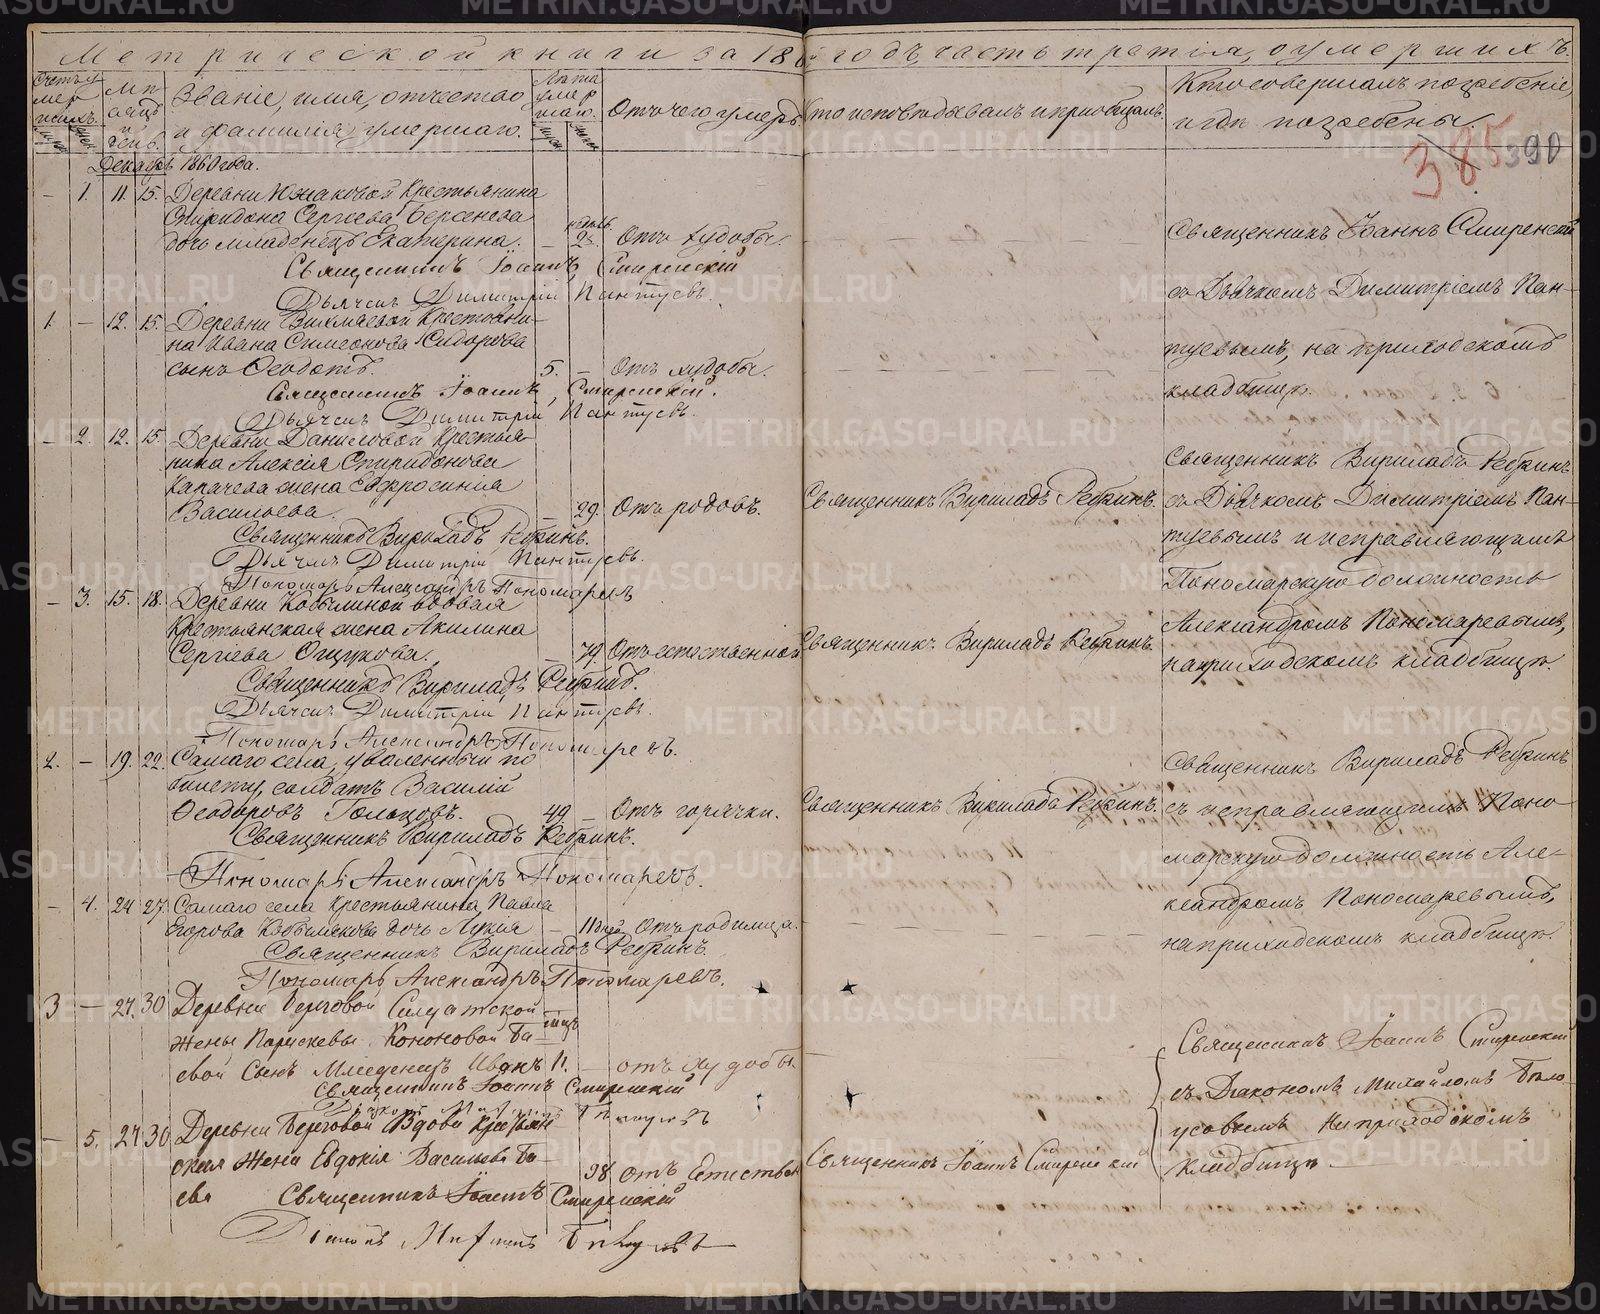 Метрической книги за 1860 годъ, часть третія, о умершихъ.
Счетъ умершихъ.
Мѣсяцъ и день.
Званіе, имя, отчество
и фамилія умершаго.
Лѣта умершаго.
Отъ чего умеръ.
Кто исповѣдывалъ и пріобщалъ.
Кто совершалъ погребеніе,
и гдѣ погребены.
385 390
Декабрь 1860 года.
– 1. 11. 15. Деревни Южаковой Крестьянина
Спиридона Сергѣева Берсенева
дочь младенецъ Екатерина. – 2 Отъ худобы.
Священникъ Іоаннъ Смиренскій
Дьячекъ Димитрій Пантуевъ.
Священникъ Іоаннъ Смиренскій
съ Дьячкомъ Димитріемъ Пан-
туевымъ, на приходскомъ
кладбищѣ.
1. – 12. 15. Деревни Крестьяни-
на Ивана Симеонова Сидорова
сынъ Ѳеодотъ. 5. – Отъ худобы.
Священникъ Іоаннъ Смиренскій.
Дьячекъ Димитрій Пантуевъ.
– 2. 12. 15. Деревни Даниловой Крестья-
нина Алексія Спиридонова
Капачева жена Евфросинія
Васильева. – 29. Отъ родовъ. Священникъ Вириладъ Ребринъ.
Священникъ Вириладъ Ребринъ.
Дьячекъ Димитрій Пантуевъ.
Пономарь Александръ Пономаревъ
Священникъ Вириладъ Ребринъ
съ Дьячкомъ Димитріемъ Пан-
туевымъ и исправляющимъ
Пономарскую должность
Александромъ Пономаревымъ,
на приходскомъ кладбищѣ.
– 3. 15. 18. Деревни Кобылиной вдовая
Крестьянская жена Акилина
Сергіева Ощукова. – 79. Отъ естественной Священникъ Вириладъ Ребринъ.
Священникъ Вириладъ Ребринъ.
Дьячекъ Димитрій Пантуевъ.
Пономарь Александръ Пономаревъ.
2. – 19. 22. Самаго села, уволенный по
билету, солдатъ Василій
Ѳеодоровъ Гольцовъ. 49 – Отъ горячки. Священникъ Вирилада Ребринъ.
Священникъ Вириладъ Ребринъ.
Пономарь Александръ Пономаревъ.
Священникъ Вириладъ Ребринъ
съ исправляющимъ Поно
марскую должность Але-
ксандромъ Пономаревымъ,
на приходскомъ кладбищѣ.
– 4. 24 27. Самаго села Крестьянина Павла
Егорова Кобылякова дочь Лукія – 11 дней Отъ родимца.
Священникъ Вириладъ Ребринъ.
Пономарь Александръ Пономаревъ.
3 – 27. 30 Деревни Береговой Солдатской
жены Параскевы Кононовой Ба-
евой Сынъ Младенецъ Иванъ 11. – отъ худобы.
Священникъ Іоаннъ Смиренскій
– 5. 27 30 Деревни Береговой Вдова Крестьян
ская Жена Евдокія Васильева Ба-
ева 98 отъ Естествен Священникъ Іоаннъ Смиренскій
Священникъ Іоаннъ Смиренскій
Діаконъ Михаилъ Бѣлоусовъ
Священникъ Іоаннъ Смиренскій
съ Діакономъ Михайломъ Бѣло-
усовымъ На приходскомъ
Кладбищѣ
METRIKI.GASO-URAL.RU